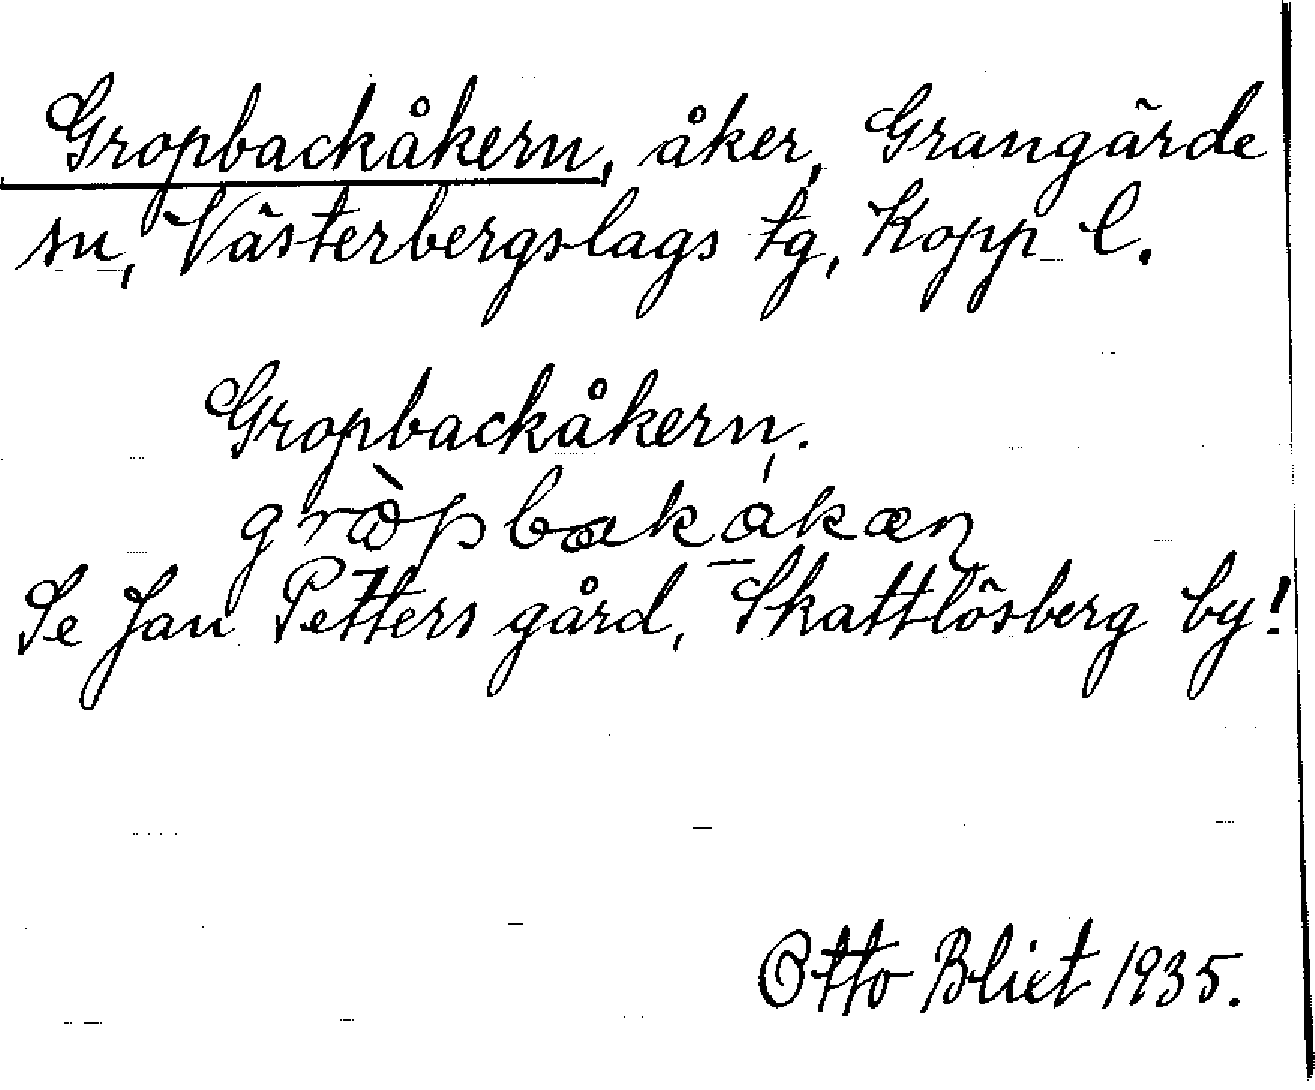 Gropbackåkern, åker, Grangärde
sn, Västerbergslags tg, Kopp l.
Gropbackåkern.
Se Jan Petters gård, Skattlösberg by!
Otto Bliet 1935.